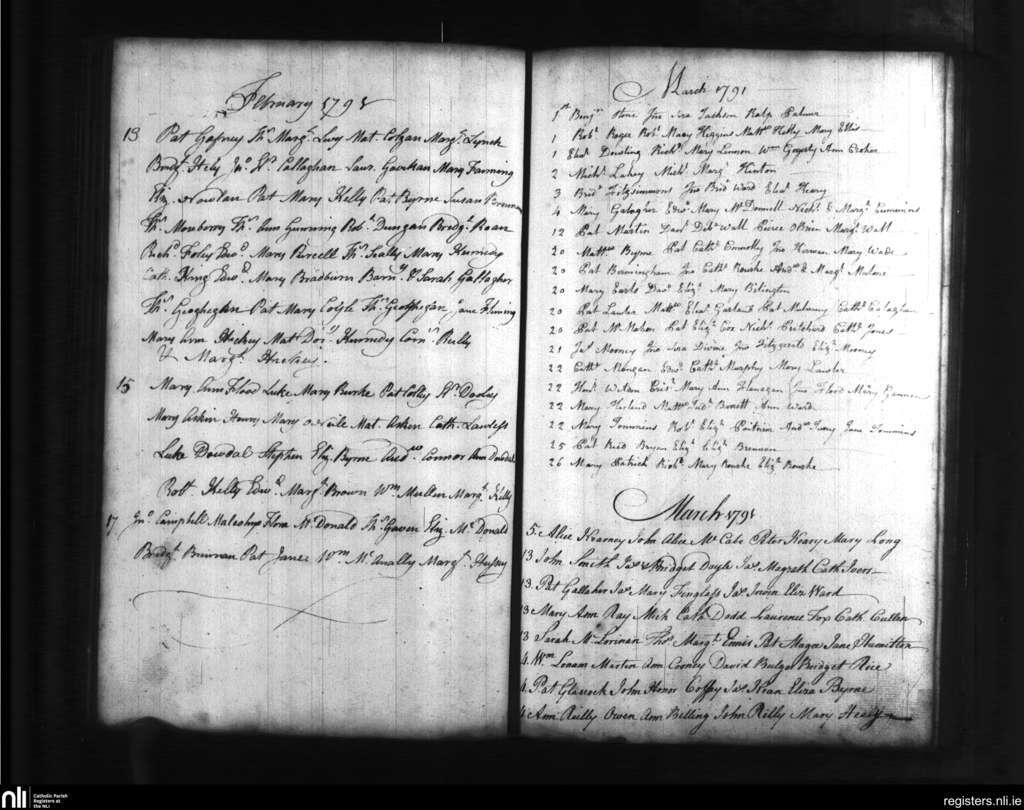 February 1791
13 Pat Gafney Ths Margt. Lucy Mat. Colgan Margt. Lynch
Bridt. Hely Jno. Callaghan Laur. Mary Fanning
Eliz. Nowlan Pat Mary Kelly Pat. Byrne Susan Brennan
Ths. Mowbery Ths. Ann Gunning Robt. Dungan Bridgt. Roan
Richd. Foley Edwd. Mary Purcell Ths. Scally Mary Kennedy
Cath. King Edwd. Mary Bradburn Barny. & Sarah Gallagher
Ths. Geoghegan Pat Mary Coyle Ths. Geoghegan Jane Fleming
Mary Ann Hickey Mat. Dory. Kennedy Corns. Reilly
& Margt. Hickey.
15 Mary Ann Flood Luke Mary Burke Pat Colley Dooley
Mary Askin Henry Mary Mat. Askin Cath. Lawless
Luke Dowdal Stephen Eliz. Byrne Andw. Connor Ann Dowdal
Robt. Kelly Edwd. Margt. Brown Wm. Mullen Margt. Kelly
17 Jno. Campbell Malachy Flora McDonald Ths. Gaven Eliz. McDonald
Bridgt. Pat Jane Wm. McAnally Margt. Hussey
March 1791
1st Benjn. Hone Jno Sara Jackson Ralp Palmer
1 Robt. Roger Robt. Mary Higgins Mattw Holly Mary Ellis
1 Elizth. Dowling Richd. Mary Lennon Wm Gegerty Ann Croker
2 Michl. Lahey Michl. Margt. Hinton
3 Bridt. Fitzsimmons Jno Bridt Ward Elizth. Heavy
4 Mary Galagher Edwd. Mary McDonnell Nichs. & Margt. Cummins
12 Pat Martin Danl. Debh Wall Pierce OBrien Margt. Wall
20 Mattw. Byrne Pat Cathe. Connolly Jno Harman Mary Wade
20 Pat Bermingham Jno Cathe. Rourke Andw. & Margt. Malone
20 Mary Earls Danl. Elizth. Mary Bilington
20 Pat Lawler Mattw Elizth. Garland Pat Mulanny Cathe. Calaghan
20 Pat McMahon Pat Elizth. Cox Nichs. Pritchard Cathe. Jones
21 Jas. Mooney Jno Sara Divine Jno Fitzgerald Elizth. Mooney
22 Cathe. Mangan Edwd. Cathe. Murphy Mary Lawler
22 Mary Ann Flanagan Jno Flood Mary Gannon
22 Mary Harland Mattw Judh. Burnett Ann Ward
22 Mary Tommins Robt. Elizth. Andw. Ivory Jane Tommins
25 Pat Reed Bryan Elizth. Elizth. Brennon
26 Mary Patrick Richd. Mary Rourke Elizth. Rourke
March 1791
5. Alice Kearney John Alice McCabe Peter Keary Mary Long
13 John Smith Jas & Bridget Doyle Jas. Magrath Cath Ivers
13. Pat Gallaher Jas. Mary Finglass Jas. Irwin Eliz Ward
13 Mary Ann Ray Mich Cath Dodd Laurence Fox Cath. Cullen
13 Sarah McLorinan Thos. Margt Ennis Pat Magee Jane Hamilton
4. Wm Lonam Martin Ann Cooney David Bulger Bridget Rice
4. Pat Glascock John Honor Coffey Jas. Kean Eliza Byrne
4 Ann Reilly Owen Ann Belling John Rilly Mary Heady
nli
Catholic Parish
Registers at
the NLI
registers.nli.ie